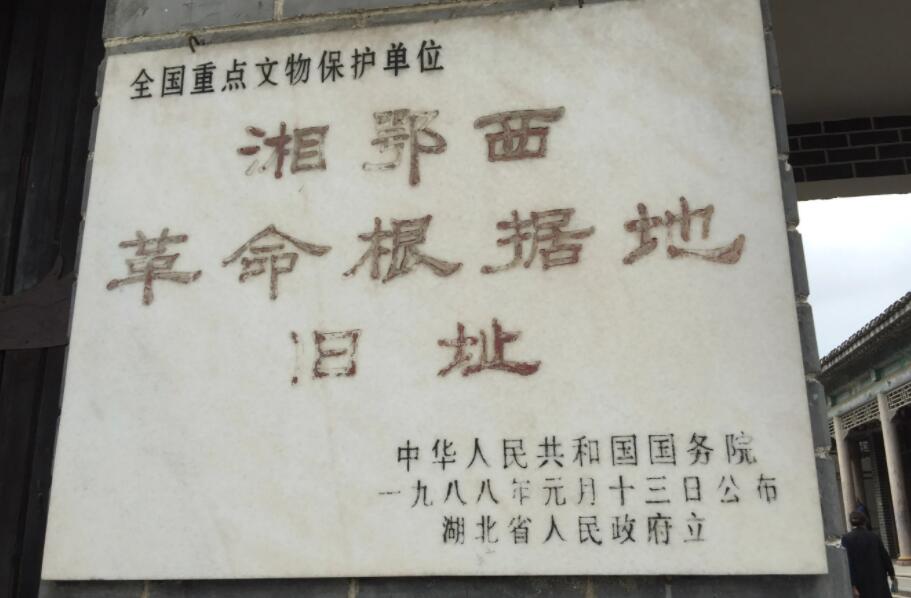 全国重点文物保护单位
湘鄂西
革命根据地
旧址
中华人民共和国国务院
一九八八年元月十三日公布
湖北省人民政府立